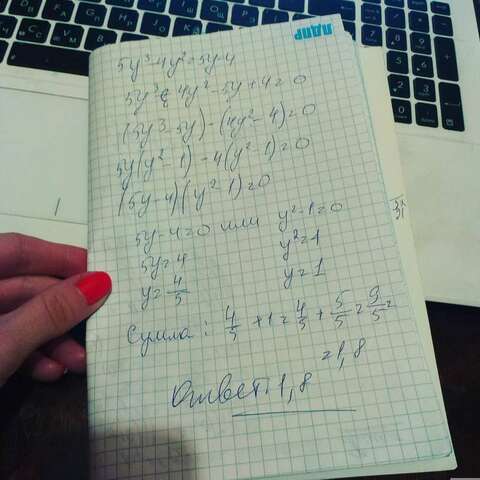 ЛДПР
5y³-4y²=5y-4
5y³-4y²-5y+4=0
(5y³-5y)-(4y²-4)=0
5y(y²-1)-4(y²-1)=0
(5y-4)(y²-1)=0
5y-4=0 или y²-1=0
5y=4 y²=1
y=4/5 y=1
Сумма: 4/5+1=4/5+5/5=9/5=
=1,8
Ответ: 1,8